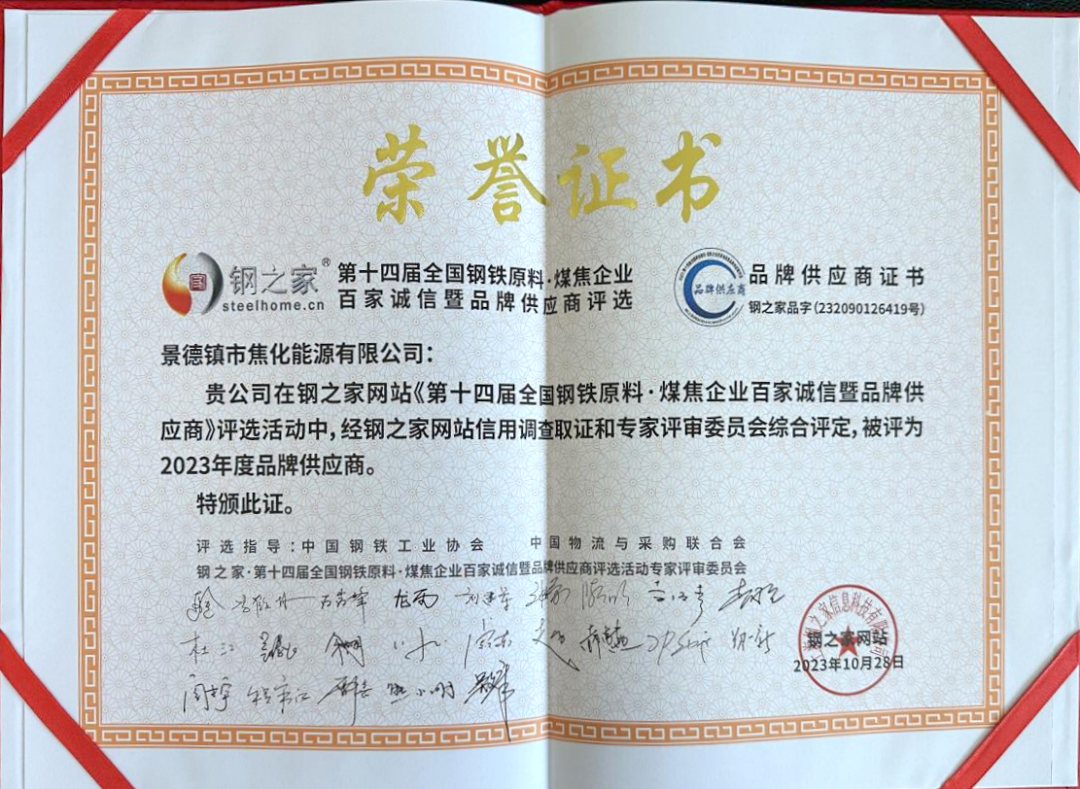 荣誉证书
钢之家®
steelhome.cn
第十四届全国钢铁原料·煤焦企业
百家诚信暨品牌供应商评选
品牌供应商
品牌供应商证书
钢之家品字(232090126419号)
景德镇市焦化能源有限公司：
贵公司在钢之家网站《第十四届全国钢铁原料·煤焦企业百家诚信暨品牌供
应商》评选活动中,经钢之家网站信用调查取证和专家评审委员会综合评定,被评为
2023年度品牌供应商。
特颁此证。
评选指导:中国钢铁工业协会 中国物流与采购联合会
钢之家·第十四届全国钢铁原料·煤焦企业百家诚信暨品牌供应商评选活动专家评审委员会
杜江
钢之家网站
2023年10月28日